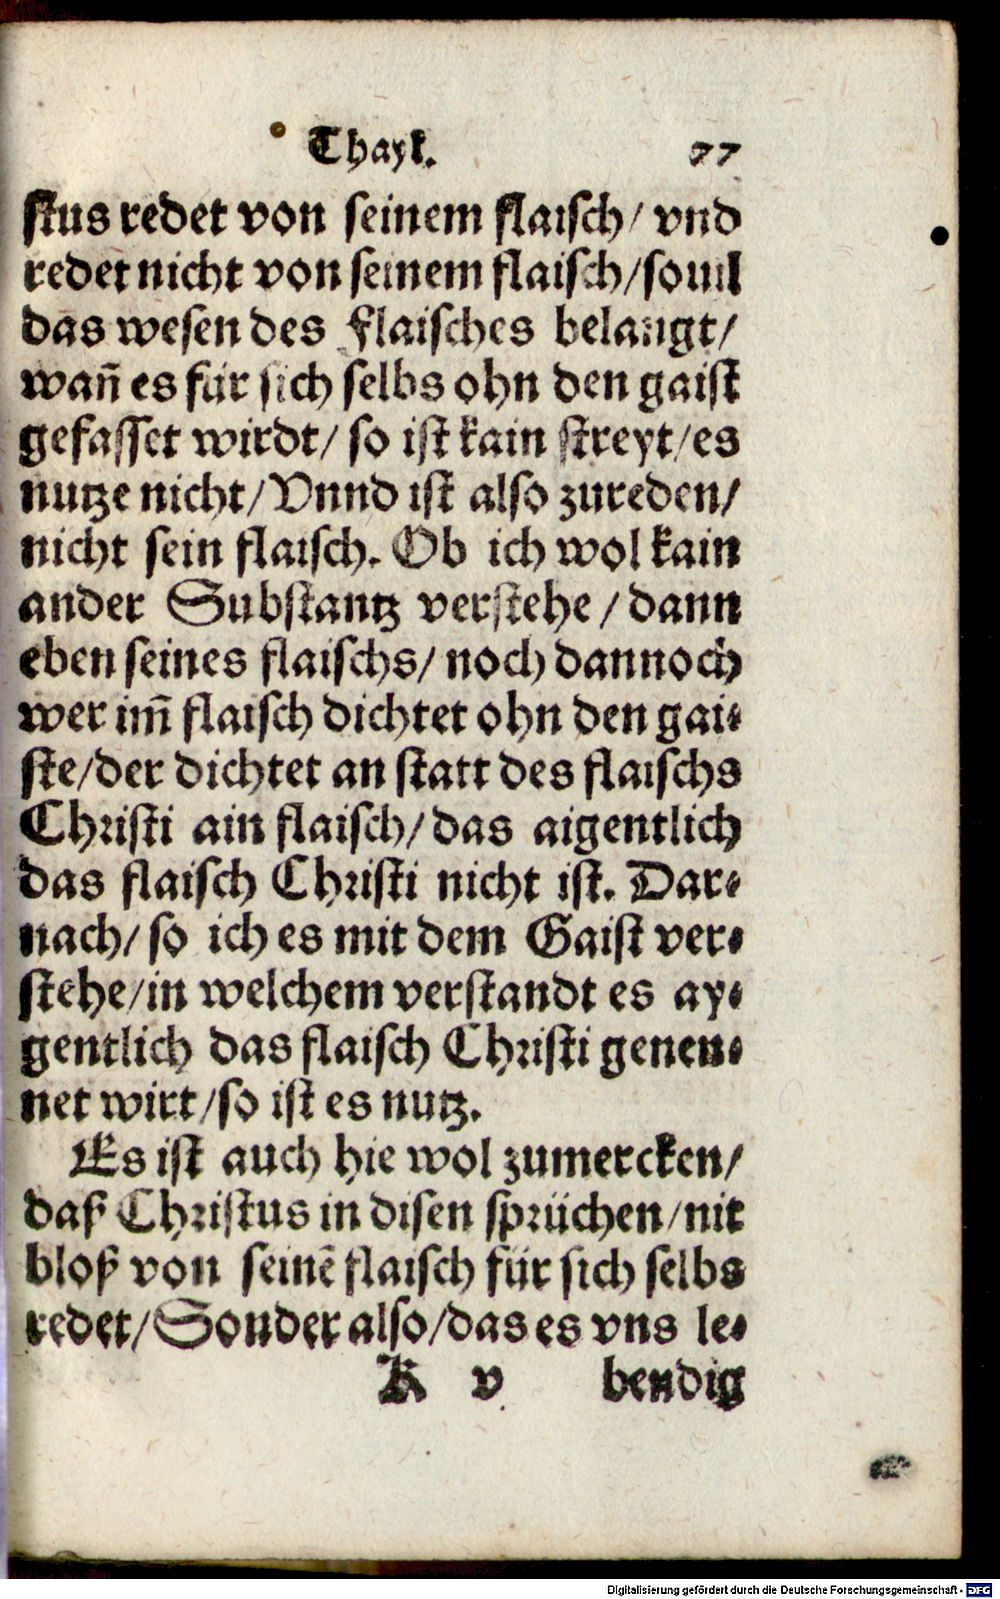 Thayl. 77
stus redet von seinem flaisch/ vnd
redet nicht von seinem flaisch/souil
das wesen des flaisches belangt/
wañ es für sich selbs ohn den gaist
gefasset wirdt/ so ist kain streyt/es
nutze nicht/Vnnd ist also zureden/
nicht sein flaisch. Ob ich wol kain
ander Substantz verstehe/ dann
eben seines flaischs/ noch dannoch
wer im̃ flaisch dichtet ohn den gai⸗
ste/der dichtet an statt des flaischs
Christi ain flaisch/das aigentlich
das flaisch Christi nicht ist. Dar⸗
nach/so ich es mit dem Gaist ver⸗
stehe/in welchem verstandt es ay⸗
gentlich das flaisch Christi genen⸗
net wirt/so ist es nutz.
Es ist auch hie wol zumercken/
daß Christus in disen sprüchen/nit
bloß von seinē flaisch für sich selbs
redet/Sonder also/das es vns le⸗
K v bendig
Digitalisierung gefördert durch die Deutsche Forschungsgemeinschaft - DFG